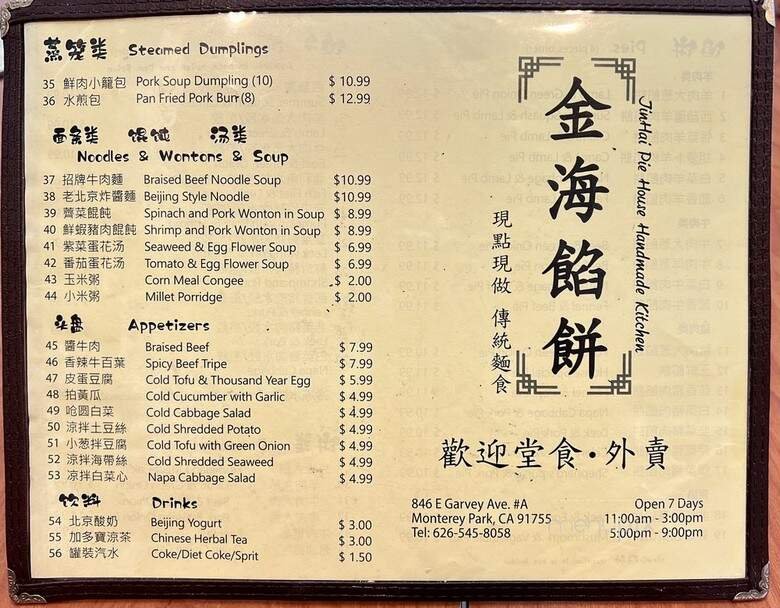 蒸笼类 Steamed Dumplings
35 鮮肉小籠包 Pork Soup Dumpling (10) $ 10.99
36 水煎包 Pan Fried Pork Bun (8) $ 12.99
面食类 馄饨 汤类
Noodles & Wontons & Soup
37 招牌牛肉麵 Braised Beef Noodle Soup $10.99
38 老北京炸醬麵 Beijing Style Noodle $10.99
39 薺菜餛飩 Spinach and Pork Wonton in Soup $ 8.99
40 鮮蝦豬肉餛飩 Shrimp and Pork Wonton in Soup $ 8.99
41 紫菜蛋花汤 Seaweed & Egg Flower Soup $ 6.99
42 番茄蛋花汤 Tomato & Egg Flower Soup $ 6.99
43 玉米粥 Corn Meal Congee $ 2.00
44 小米粥 Millet Porridge $ 2.00
头盘 Appetizers
45 醬牛肉 Braised Beef $ 7.99
46 香辣牛百葉 Spicy Beef Tripe $ 7.99
47 皮蛋豆腐 Cold Tofu & Thousand Year Egg $ 5.99
48 拍黃瓜 Cold Cucumber with Garlic $ 4.99
49 嗆圓白菜 Cold Cabbage Salad $ 4.99
50 涼拌土豆絲 Cold Shredded Potato $ 4.99
51 小葱拌豆腐 Cold Tofu with Green Onion $ 4.99
52 涼拌海帶絲 Cold Shredded Seaweed $ 4.99
53 凉拌白菜心 Napa Cabbage Salad $ 4.99
饮料 Drinks
54 北京酸奶 Beijing Yogurt $ 3.00
55 加多寶涼茶 Chinese Herbal Tea $ 3.00
56 罐裝汽水 Coke/Diet Coke/Sprit $ 1.50
金海餡餅
JinHai Pie House Handmade Kitchen
現點現做 傳統麵食
歡迎堂食·外賣
846 E Garvey Ave. #A
Monterey Park, CA 91755
Tel: 626-545-8058
Open 7 Days
11:00am - 3:00pm
5:00pm - 9:00pm